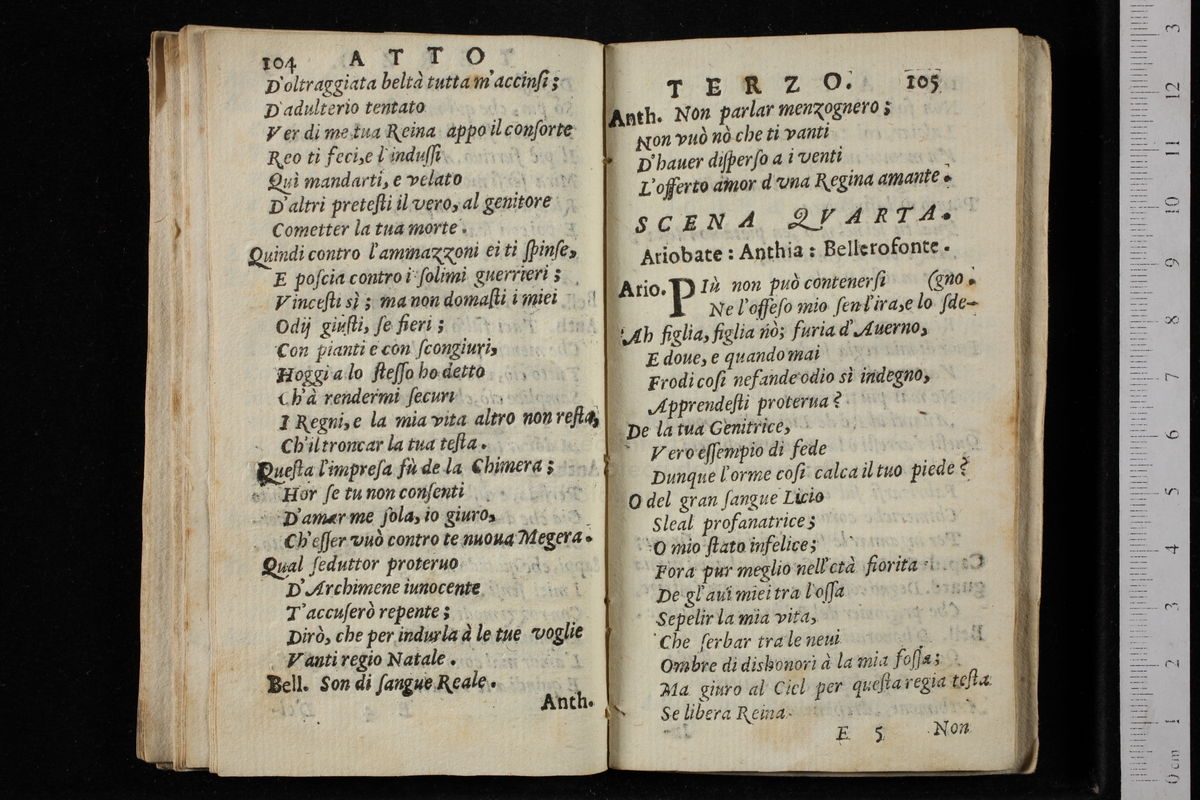 104 ATTO
D'oltraggiata beltà tutta m'accinſi;
D'adulterio tentato
Ver di me tua Reina appo il conſorte
Reo ti feci, e l'induſſi
Quì mandarti, e velato
D'altri preteſti il vero, al genitore
Cometter la tua morte.
Quindi contro l'ammazzoni ei ti ſpinſe,
E poſcia contro i ſolimi guerrieri;
Vinceſti sì; ma non domaſti i miei
Odij giuſti, ſe fieri;
Con pianti e con ſcongiuri,
Hoggi a lo ſteſſo ho detto
Ch'à rendermi ſecuri
I Regni, e la mia vita altro non reſta,
Ch'il troncar la tua teſta.
Queſta l'impreſa fù de la Chimera;
Hor ſe tu non conſenti
D'amar me ſola, io giuro,
Ch'eſſer vuò contro te nuoua Megera.
Qual ſeduttor proteruo
D'Archimene iunocente
T'accuſerò repente;
Dirò, che per indurla à le tue voglie
Vanti regio Natale.
Bell. Son di ſangue Reale.
Anth.
TERZO. 105
Anth. Non parlar menzognero;
Non vuò nò che ti vanti
D'hauer diſperſo a i venti
L'offerto amor d vna Regina amante.
SCENA QVARTA.
Ariobate: Anthia: Bellerofonte.
Ario. PIù non può contenerſi (gno.
Ne l'offeſo mio ſen l'ira, e lo ſde-
Ah figlia, figlia nò; furia d'Auerno,
E doue, e quando mai
Frodi coſi nefande odio sì indegno,
Apprendeſti proterua?
De la tua Genitrice,
Vero eſſempio di fede
Dunque l'orme coſi calca il tuo piede?
O del gran ſangue Licio
Sleal profanatrice;
O mio ſtato infelice;
Fora pur meglio nell'età fiorita
De gl'aui miei tra l'oſſa
Sepelir la mia vita,
Che ſerbar tra le neui
Ombre di dishonori à la mia foſſa;
Ma giuro al Ciel per queſta regia teſta
Se libera Reina
E 5 Non